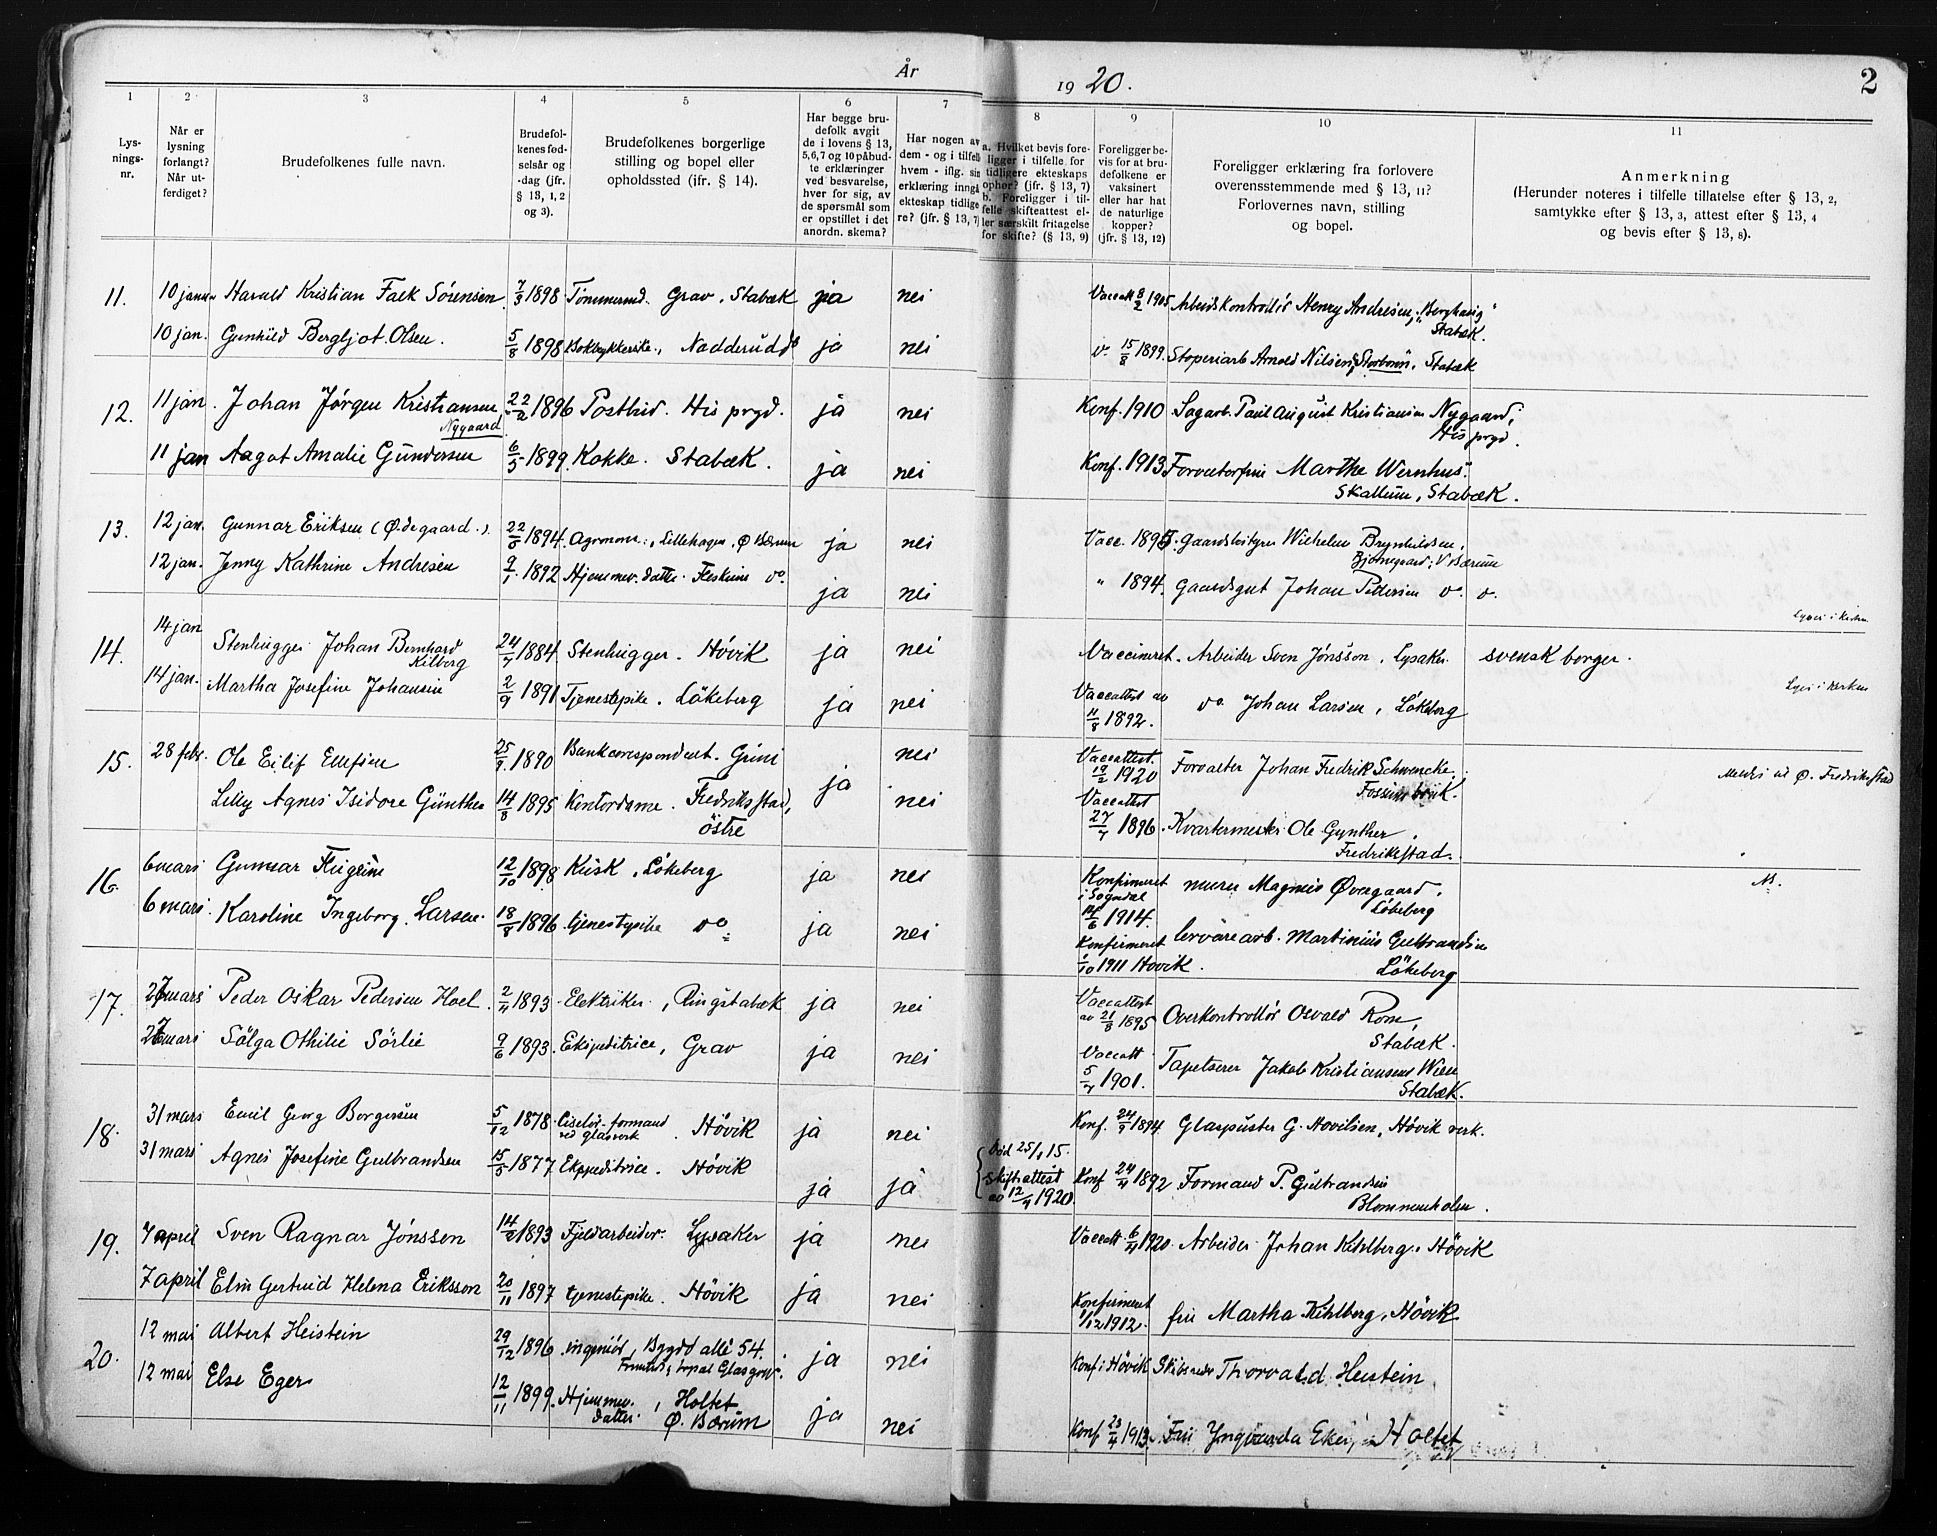 År 1920.
2
1 2 3 4 5 6 7 8 9 10 11
Lys-
nings-
nr.
Når er
lysning
forlangt?
Når ut-
ferdiget?
Brudefolkenes fulle navn.
Brudefol-
kenes fød-
selsår og
-dag (jfr.
§ 13, 1, 2
og 3).
Brudefolkenes borgerlige
stilling og bopel eller
opholdssted (ifr. § 14).
Har begge bru-
defolk avgit
de i lovens § 13,
5, 6, 7 og 10 påbud-
te erklæringer
ved besvarelse,
hver for sig, av
de spørsmål som
er opstillet i det
anordn. skema?
Har nogen av
dem - og i tilfelle
hvem - iflg. sin
erklæring inngå
ekteskap tidlige
re? (jfr. § 13, 7)
a. Hvilket bevis fore-
ligger i tilfelle for
tidligere ekteskaps
ophør? (jfr. § 13, 7)
b. Foreligger i til-
felle skifteattest el-
ler særskilt fritagelse
for skifte? (§ 13, 9)
Foreligger be-
vis for at bru-
defolkene er
vaksinert
eller har hat
de naturlige
kopper?
(jfr. § 13, 12)
Foreligger erklæring fra forlovere
overensstemmende med § 13, 11?
Forlovernes navn, stilling
og bopel.
Anmerkning
(Herunder noteres i tilfelle tillatelse efter § 13, 2,
samtykke efter § 13, 3, attest efter § 13, 4
og bevis efter § 13, 8).
11. 10 januar Harald Kristian Falk Sörensen 7/3 1898 Tömmermd. Grav, Stabæk ja nei Vaccatt 8/2 1905 Arbeidskontrollör Henry Andresen, "Berghaug"
Stabæk.
10 jan. Gunhild Bergljot Olsen. 5/8 1898 Nadderudd ja nei do 15/8 1899. Stoperiarb Arnold Nilsen, Stabæk
12. 11 jan. Johan Jørgen Kristiansen 22/2 1896 Postbud. His prgd. ja nei Konf. 1910 Sagarb. Paul August Kristiansen Nygaard;
Nygaard His prgd.
11 jan Aagot Amalie Gundersen 6/5 1899. Kokke. Stabæk. ja nei Konf. 1913 Marthe Wernhus.
Skallum, Stabæk.
13. 12 jan. Gunnar Eriksen (Ødegaard.) 22/8 1894. Agronom, Lillehagen, Ø Bærum ja nei Vacc. 1895. Gaardsbestyrer Wilhelm Brynhildsen,
Bjørnegaard; V Bærum
12 jan. Jenny Kathrine Andresen 9/1 1892 Hjemmev. datter. do. ja nei " 1894. Gaardsgut Johan Pedersen do. do.
Lyses i Kirken
14. 14 jan Stenhugger Johan Bernhard
Kilberg 24/7 1884. Stenhugger. Hövik ja nei Vaccineret. Arbeider Sven Jónsson, Lysaker. svensk borger.
14 jan. Martha Josefine Johansen 2/9 1891 Tjenestepike. Lökeberg ja nei Vaccattest av
11/8 1892. do. Johan Larsen, Lökeberg Lyses i kirken
15. 28 febr. Ole Eilif Ellefsen 25/9. 1890 Bankcorrespondent. Grini ja nei Vaccattest.
19/2 1920 Forvalter Johan Fredrik Schwencke,
Fossum bruk. Meldes til Ø. Fredriksstad
Lilly Agnes Isidore Günther 14/8 1895 Kontordame. Fredriksstad,
östre nei Vaccattest
27/7 1896. Kvartermester Ole Gynther,
Fredriksstad.
16. 6 mars Gunnar 12/10 1898 Kusk, Lökeberg ja nei Konfirmeret
i Sogndal
14/6 1914. murer Magnus Øvregaard,
Lökeberg
6 mars. Karoline Ingeborg Larsen. 18/8 1896. tjenestepike do ja nei Konfirmeret
1/10 1911 Hövik. Martinius Gulbrandsen
Lökeberg
17. 27 mars Peder Oskar Pedersen Hoel. 2/4 1893. Elektriker, Ringstabæk ja nei Vaccattest
av 21/8 1895 Overkontrollör Osvald Rom,
Stabæk.
27 mars Sólga Othilie Sörlie 9/6 1893. Ekspeditrice, Grav ja nei Vaccatt
5/7 1901. Tapetserer Jakob Kristiansen Wien
Stabæk.
18. 31 mars Emil Georg Borgersen 5/12 1878. Ciselör-formand
ved Glasverk. Hövik ja nei Konf. 24/9 1894. Glaspuster G. Hovilsen, Hövik verk.
31 mars Agnes Josefine Gulbrandsen 15/5 1877 Ekspeditrice. Hövik ja ja Död 25/1 15.
Skifteattest
av 12/4 1920. Konf 24/4 1892 Formand P. Gulbrandsen
Blommenholm.
19. 7 april Sven Ragnar Jónsson 14/2 1893 Fjeldarbeider. Lysaker ja nei Vaccatt 6/4 1920. Arbeider Johan Kihlberg. Hövik
7 april Elin Gertrud Helena Eriksson 20/11 1897 tjenestepike. Hövik ja nei Konfirmeret
1/12 1912. fru Martha Kihlberg, Hövik
20. 12 mai Albert Heistein 29/12 1896. ingeniör, Bygdö allé 54.
bopæl Glasgow. ja nei Konf. i Hövik Skibsreder Thorvald Heistein
12 mai Else Eger 12/11 1899. Hjemmev.
datter, Holtet
Ø. Bærum ja nei Konf 23/4 1913. Fru Yngvarda Eker, Holtet